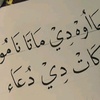 دِيْ مَاتَا نَامُو
كَاتْ دِيْ دُعَاء